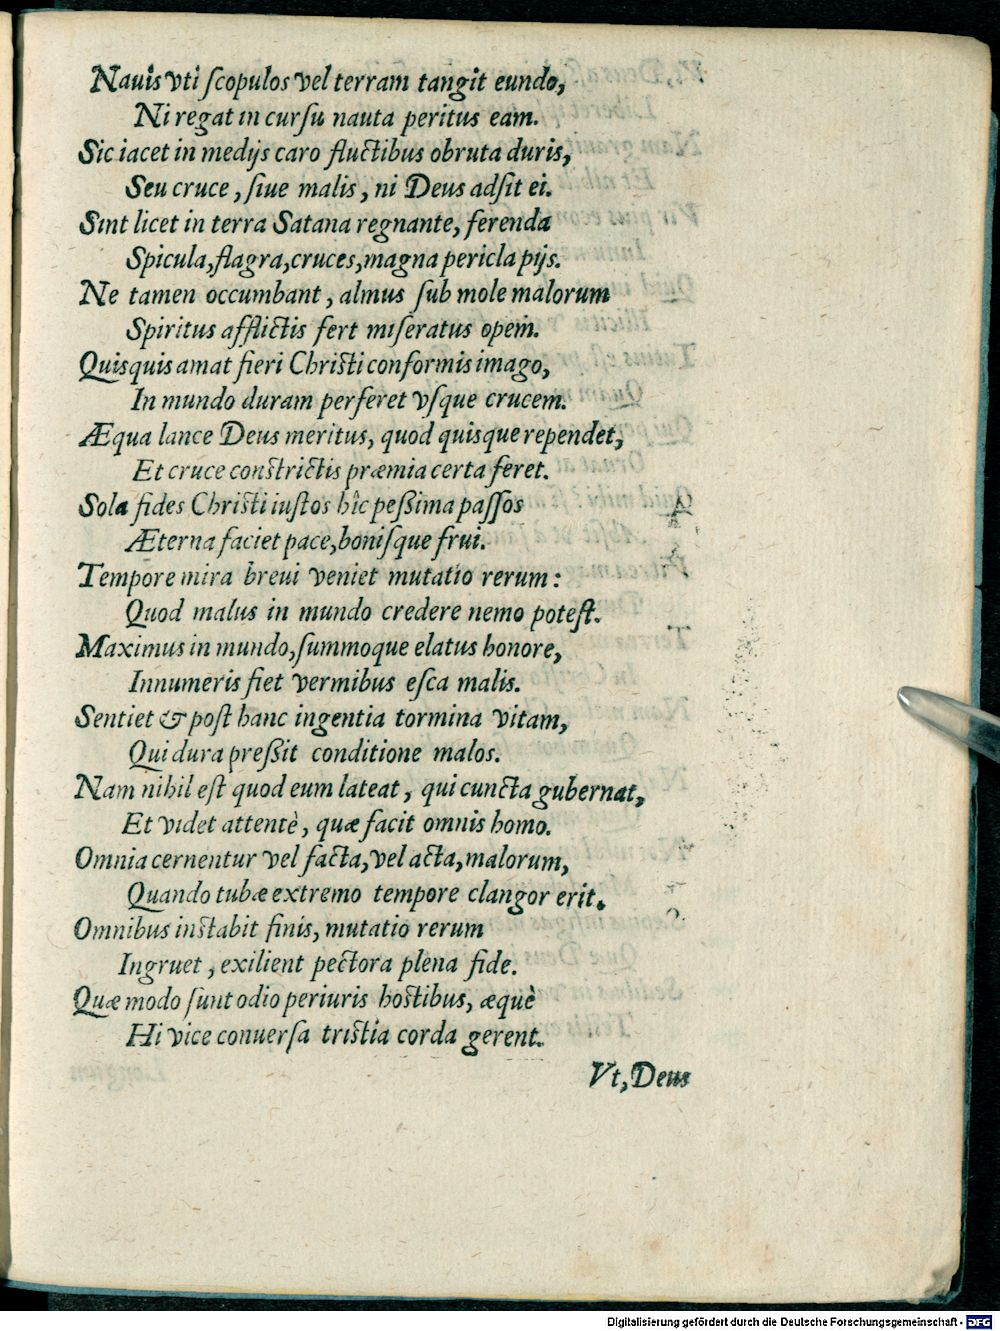 Nauis vti ſcopulos vel terram tangit eundo,
Ni regat in curſu nauta peritus eam.
Sic iacet in medijs caro fluctibus obruta duris,
Seu cruce, ſiue malis, ni Deus adſit ei.
Sint licet in terra Satana regnante, ferenda
Spicula, flagra, cruces, magna pericla pijs.
Ne tamen occumbant, almus ſub mole malorum
Spiritus afflictis fert miſeratus opem.
Quisquis amat fieri Chriſti conformis imago,
In mundo duram perferet vſque crucem.
Æqua lance Deus meritus, quod quisque rependet,
Et cruce conſtrictis præmia certa feret.
Sola fides Chriſti iuſtos hîc peßima paſſos
Æterna faciet pace, boniſque frui.
Tempore mira breui veniet mutatio rerum:
Quod malus in mundo credere nemo poteſt.
Maximus in mundo, ſummoque elatus honore,
Innumeris fiet vermibus eſca malis.
Sentiet & poſt hanc ingentia tormina vitam,
Qui dura preßit conditione malos.
Nam nihil eſt quod eum lateat, qui cuncta gubernat,
Et videt attentè, quæ facit omnis homo.
Omnia cernentur vel facta, vel acta, malorum,
Quando tubæ extremo tempore clangor erit.
Omnibus inſtabit finis, mutatio rerum
Ingruet, exilient pectora plena fide.
Quæ modo ſunt odio periuris hoſtibus, æquè
Hi vice conuerſa triſtia corda gerent.
Vt, Deus
Digitalisierung gefördert durch die Deutsche Forschungsgemeinschaft - DFG